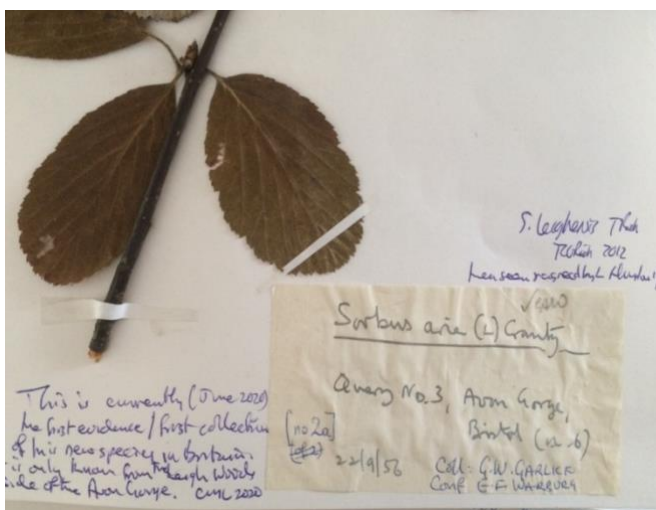 S. leighensis T. Rich
T. Rich 2012
✓ EFW
Sorbus aria (L) Crantz
Quarry No. 3, Avon Gorge,
Bristol (v.c. 6)
[no 2a]
22/9/56 Coll: G.W. GARLICK
Conf E F WARBURG
This is currently (June 2020)
the first evidence/first collection
of this new species in Britain.
is only known from the Leigh Woods
side of the Avon Gorge. 2020